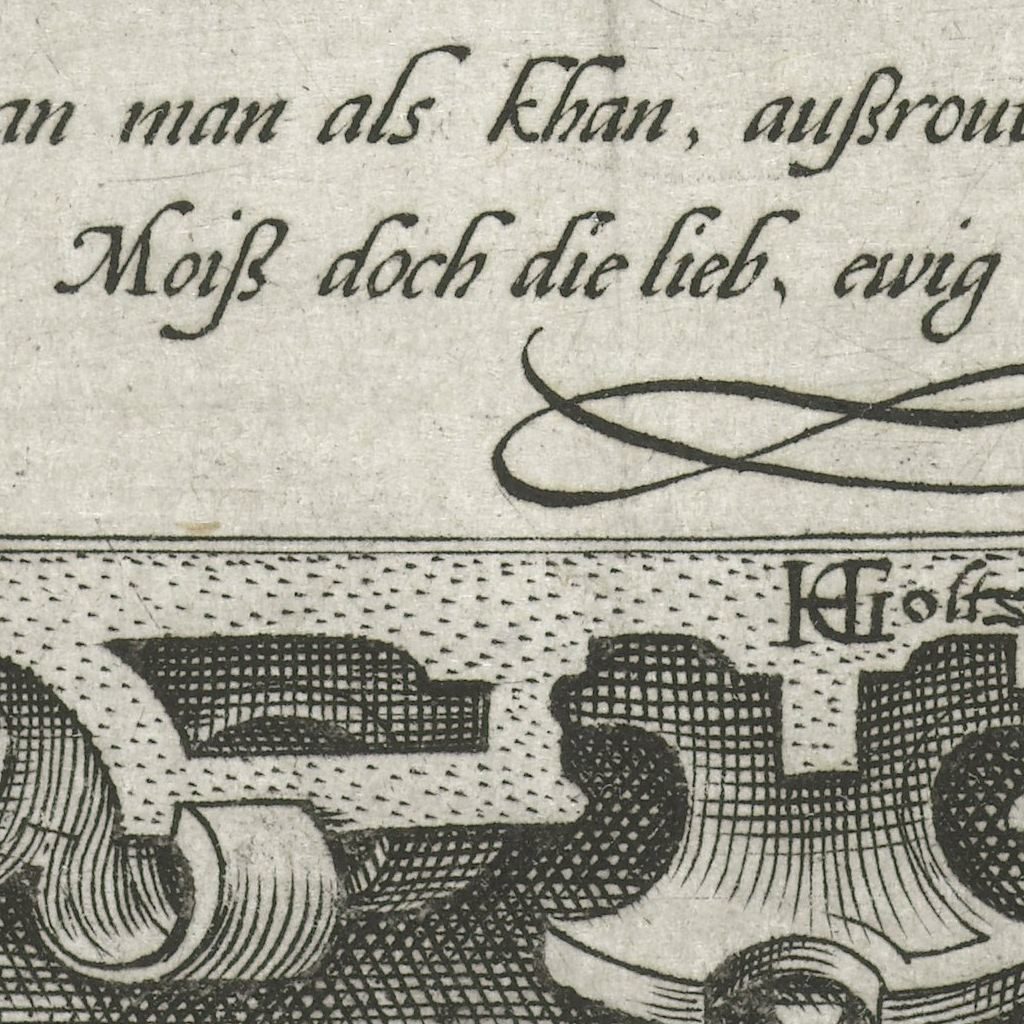 an man als khan, außrout
Moiß doch die lieb, ewig
HGoltz